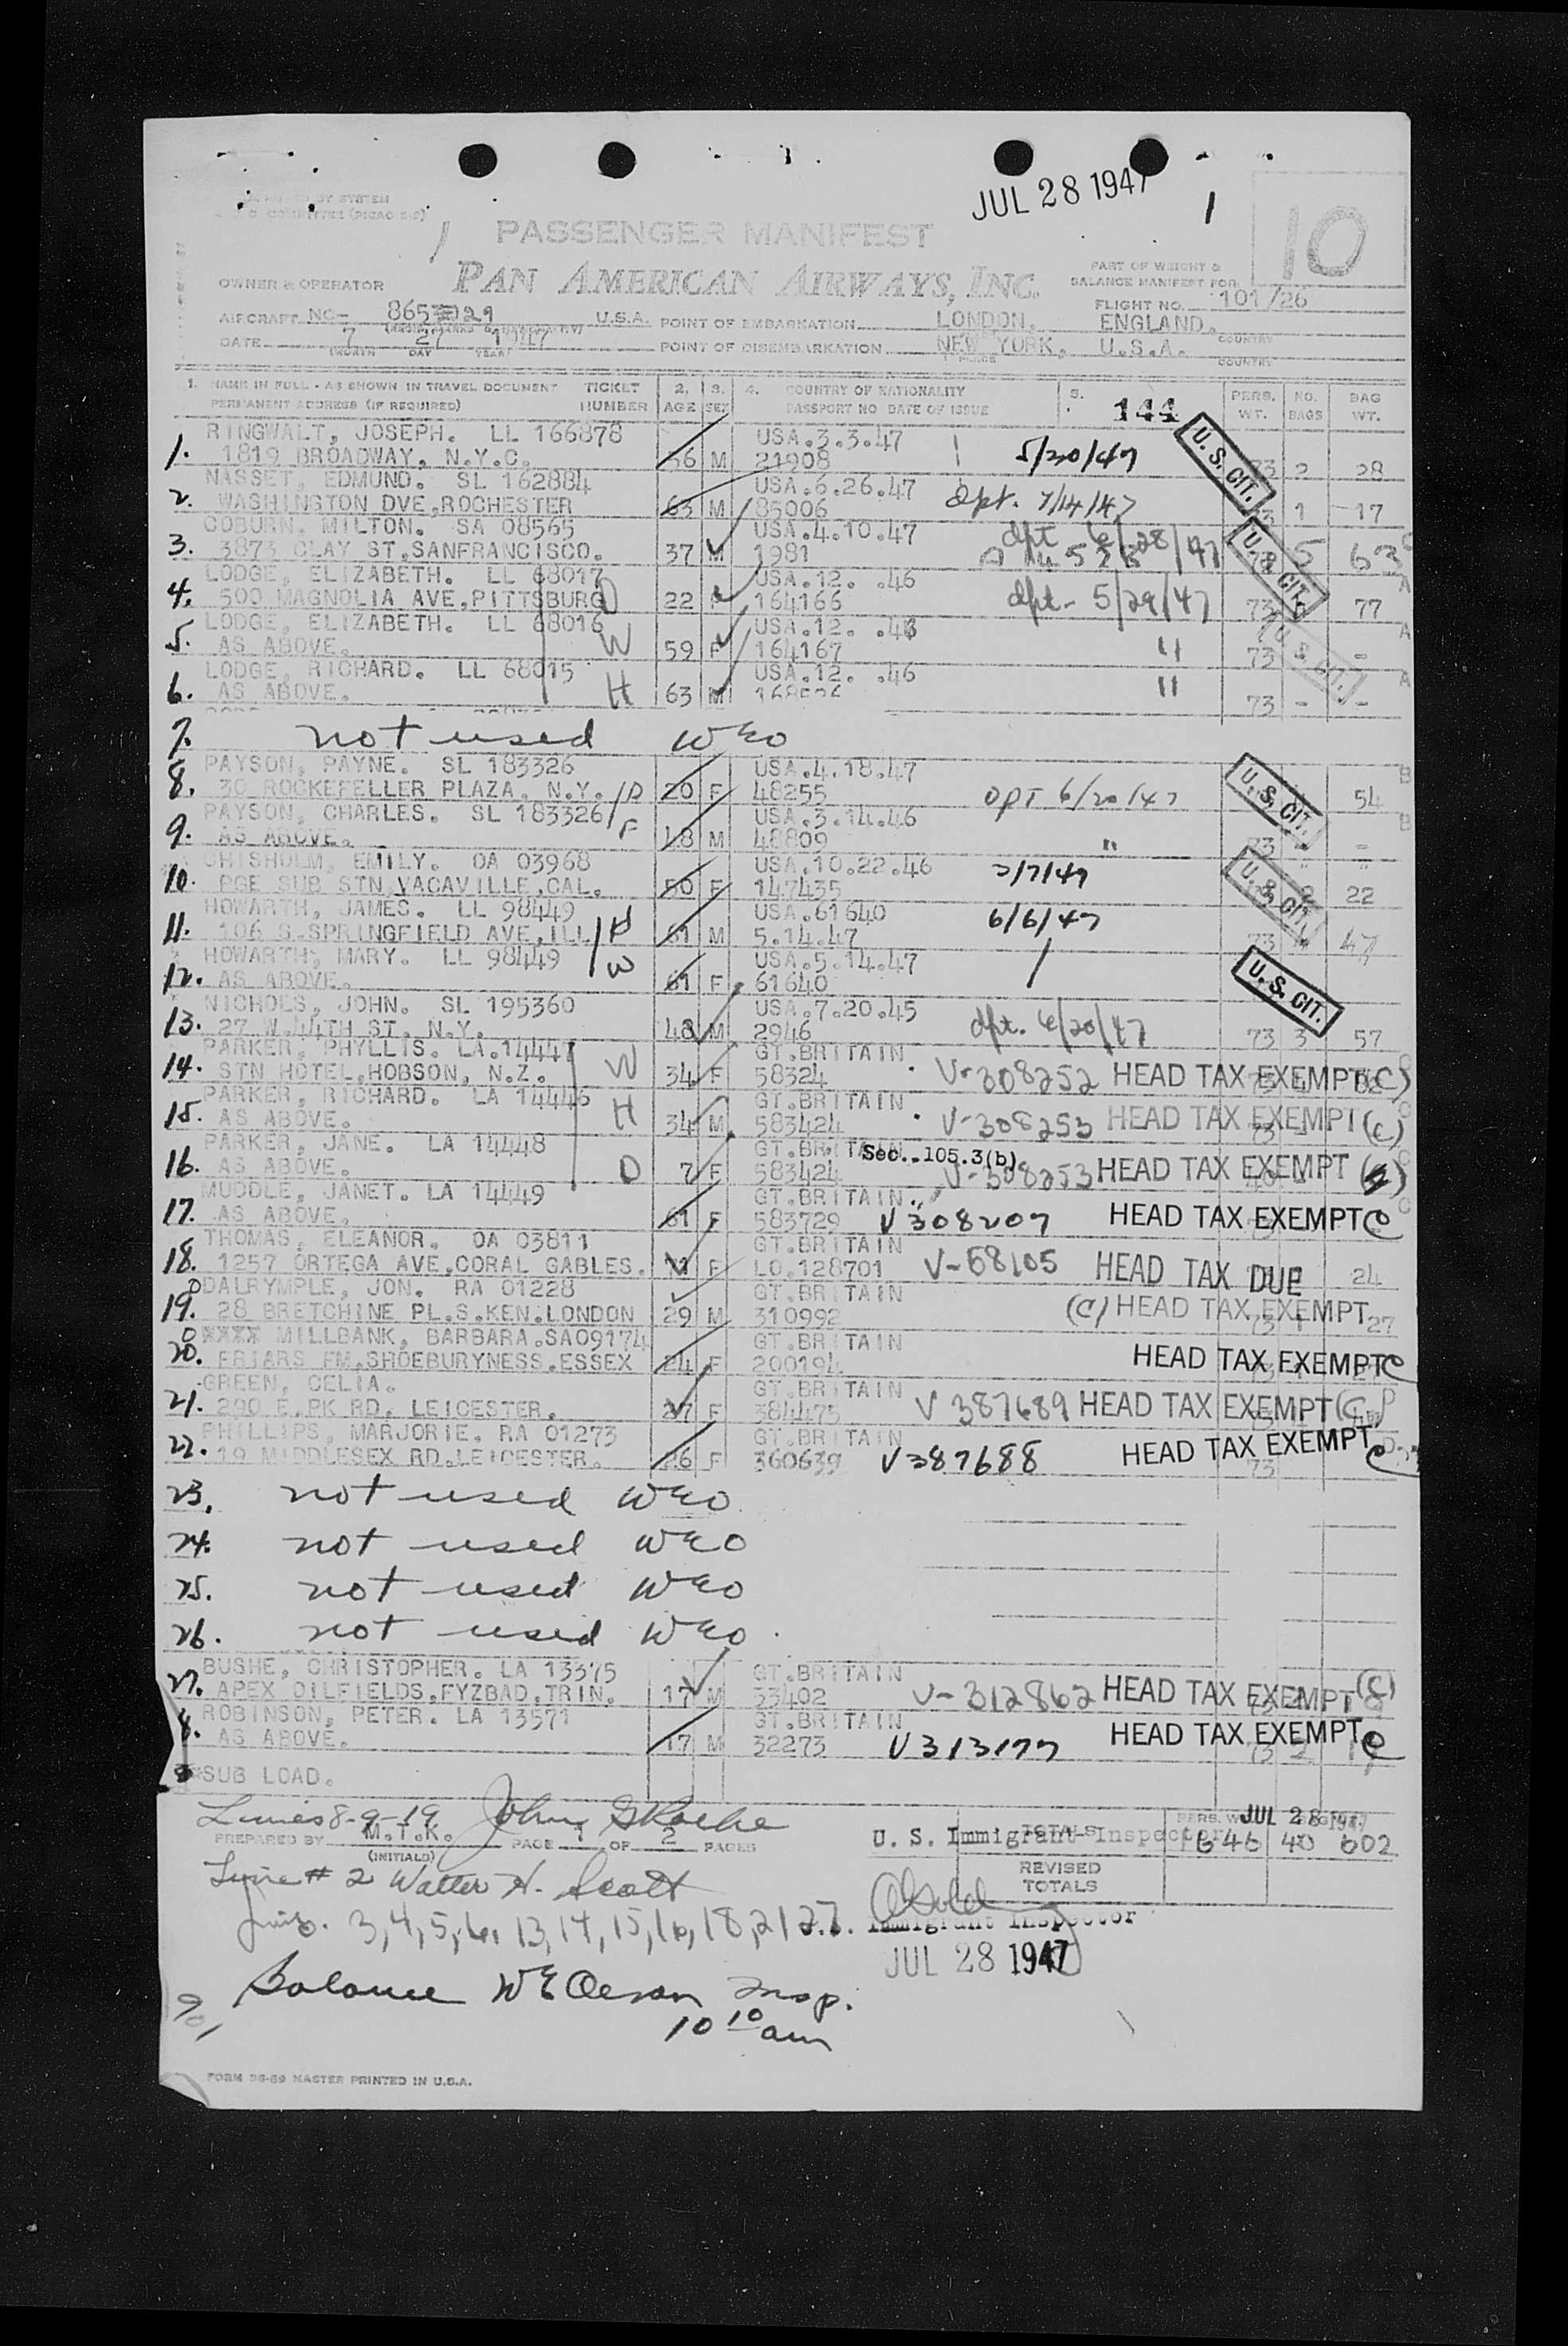 JUL 28 1947
1
10
PASSENGER MANIFEST
PAN AMERICAN AIRWAYS, INC.
PART OF WEIGHT &
BALANCE MANIFEST FOR
OWNER & OPERATOR
FLIGHT NO. 101/26
AIRCRAFT NC- U.S.A. POINT OF EMBARKATION LONDON, ENGLAND.
COUNTRY
DATE 7 27 1947 POINT OF DISEMBARKATION NEW YORK, U.S.A.
MONTH DAY YEAR PLACE COUNTRY
1. NAME IN FULL - AS SHOWN IN TRAVEL DOCUMENT TICKET 2. 3. 4. COUNTRY OF NATIONALITY 5. PERS. NO. BAG
PERMANENT ADDRESS (IF REQUIRED) NUMBER AGE SEX PASSPORT NO DATE OF ISSUE 144 WT. BAGS WT.
RINGWALT, JOSEPH. LL 166878 USA.3.3.47
1. 1819 BROADWAY, N.Y.C. 56 M 21908 5/20/47 U.S. CIT. 73 2 28
NASSET, EDMUND. SL 162884 USA.6.26.47
2. WASHINGTON DVE,ROCHESTER 63 M 85006 dpt. 7/14/47 1 17
COBURN, MILTON. SA 08565 USA.4.10.47 dpt 6/28/47
3. 3873 CLAY ST,SANFRANCISCO. 37 M 1981 U.S. CIT. 5 63
LODGE, ELIZABETH. LL 68017 USA.12. .46
4. 500 MAGNOLIA AVE,PITTSBURG D 22 F 164166 dpt- 5/29/47 73 77 A
LODGE, ELIZABETH. LL 68016 USA.12. .46
5. AS ABOVE. W 59 F 164167 " 73 - A
LODGE, RICHARD. LL 68015 USA.12. .46 U.S. CIT.
6. AS ABOVE. H 63 M " 73 - - A
7. not used WEO
PAYSON, PAYNE. SL 183326 USA.4.18.47 B
8. 30 ROCKEFELLER PLAZA, N.Y. D 20 F 48255 DPT 6/20/47 U.S. CIT. 54
PAYSON, CHARLES. SL 183326 USA.3.14.46 B
9. AS ABOVE. F 18 M 48809 " 73 -
CHISHOLM, EMILY. OA 03968 USA.10.22.46
10. PGE SUB STN,VACAVILLE,CAL. 50 F 147435 U.S. CIT. 2 22
HOWARTH, JAMES. LL 98449 USA.61640
11. 106 S.SPRINGFIELD AVE,ILL H 61 M 5.14.47 6/6/47 73 47
HOWARTH, MARY. LL 98449 USA.5.14.47
12. AS ABOVE. W 61 F 61640 U.S. CIT.
NICHOLS, JOHN. SL 195360 USA.7.20.45
13. 27 W.44TH ST. N.Y. 48 M 2946 dpt. 6/20/47 73 3 57
PARKER, PHYLLIS. LA.14447 GT.BRITAIN
14. STN HOTEL,HOBSON, N.Z. W 34 F 58324 V-308252 HEAD TAX EXEMPT (C)
PARKER, RICHARD. LA 14446 GT.BRITAIN
15. AS ABOVE. H 34 M 583424 V-308253 HEAD TAX EXEMPT (C)
PARKER, JANE. LA 14448 GT.BRITAIN Sec. 105.3(b)
16. AS ABOVE. D 7 F 583424 V-308253 HEAD TAX EXEMPT
MUDDLE, JANET. LA 14449 GT.BRITAIN
17. AS ABOVE. 61 F 583729 V308207 HEAD TAX EXEMPT C
THOMAS, ELEANOR. OA 03811 GT.BRITAIN
18. 1257 ORTEGA AVE,CORAL GABLES. F LO.128701 V-58105 HEAD TAX DUE 24
DALRYMPLE, JON. RA 01228 GT.BRITAIN
19. 28 BRETCHINE PL.S.KEN.LONDON 29 M 310992 (C) HEAD TAX EXEMPT 27
MILLBANK, BARBARA.SA09174 GT.BRITAIN
20. FRIARS FM,SHOEBURYNESS.ESSEX 24 F 200194 HEAD TAX EXEMPT C
GREEN, CELIA. GT.BRITAIN
21. 290 E.PK RD. LEICESTER. 27 F 384475 V 387689 HEAD TAX EXEMPT (C)
PHILLIPS, MARJORIE. RA 01273 GT.BRITAIN
22. 19 MIDDLESEX RD.LEICESTER. 26 F 360639 V387688 HEAD TAX EXEMPT C
73
23. not used WEO
24. not used WEO
25. not used WEO
26. not used WEO
BUSHE, CHRISTOPHER. LA 13375 GT.BRITAIN
27. APEX OILFIELDS.FYZBAD.TRIN. 17 M 33402 V-312862 HEAD TAX EXEMPT (C)
ROBINSON, PETER. LA 13571 GT.BRITAIN
8. AS ABOVE. 17 M 32273 V313177 HEAD TAX EXEMPT C
SUB LOAD.
Lines 8-9-19 John
PREPARED BY M.T.K. PAGE 1 OF 2 PAGES
(INITIALS)
U. S. Immigrant Inspector TOTALS PERS. W JUL 28 1947
1646 40 602
REVISED
TOTALS
Line # 2 Walter H. Scott
Lines. 3,4,5,6, 13,14,15,16,18,21 27.
Immigrant Inspector
JUL 28 1947
Balance WE Olson Insp.
10 10 am
FORM 36-69 MASTER PRINTED IN U.S.A.